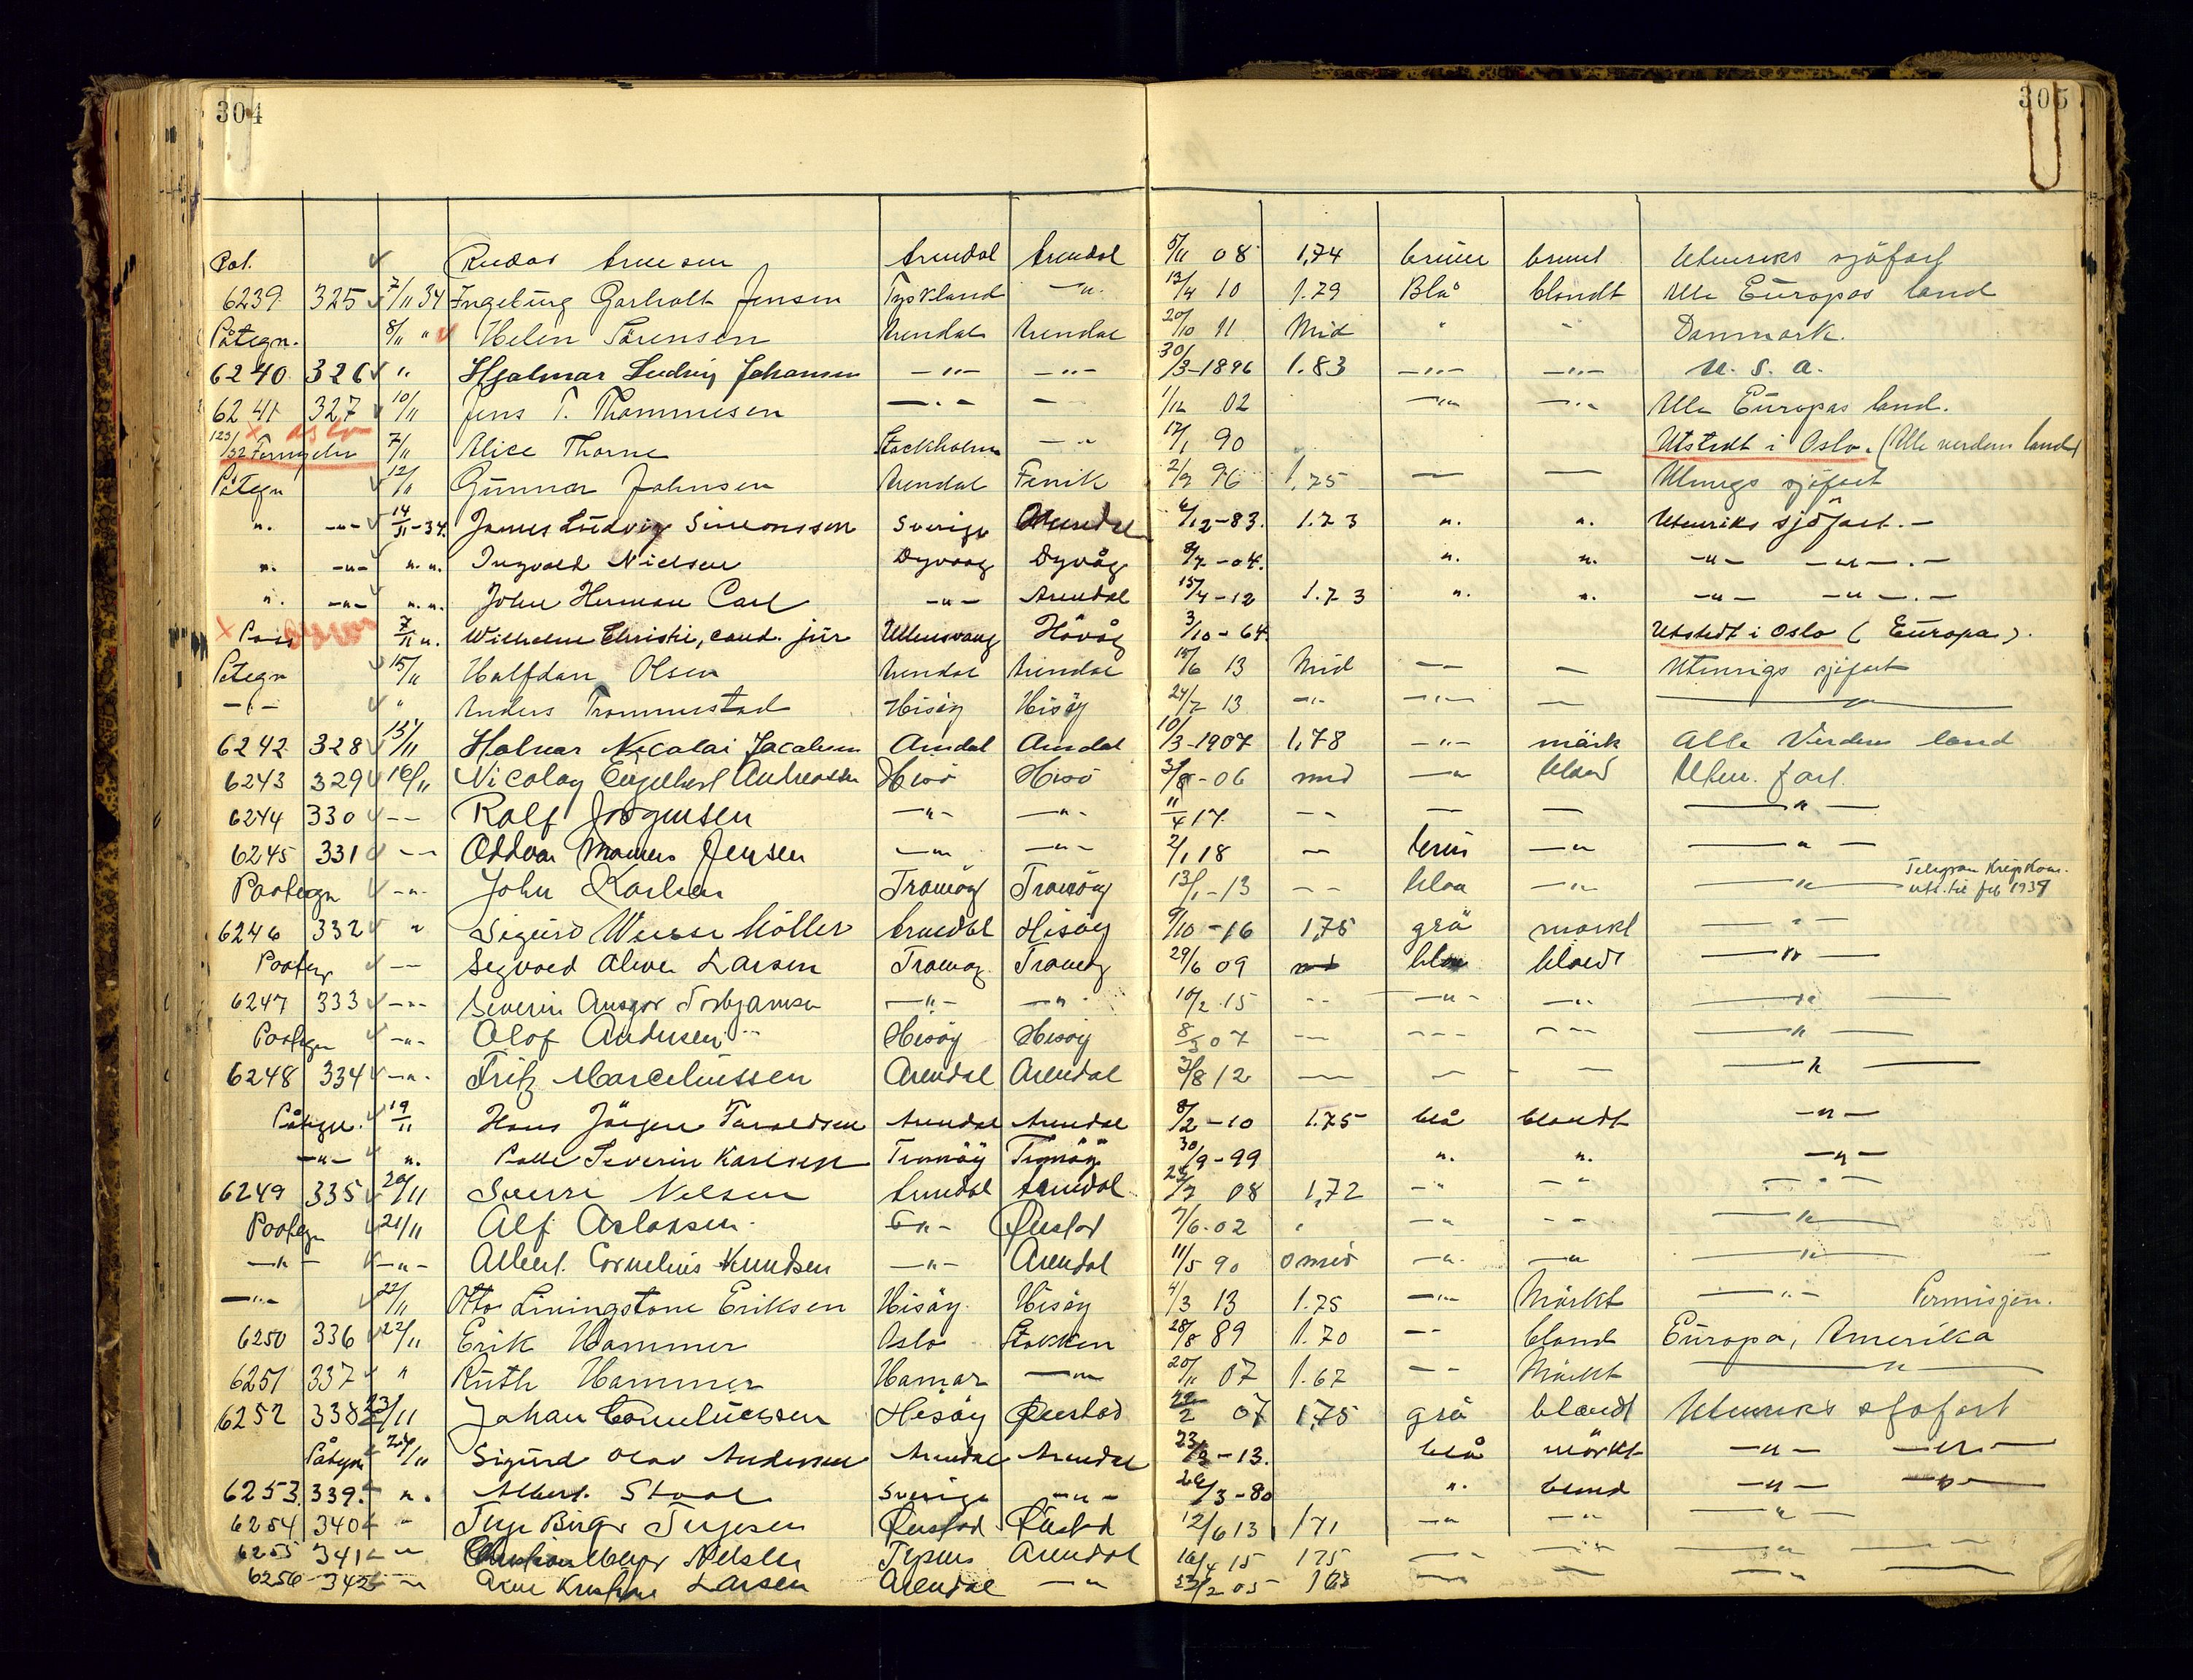 304 305
Pat. Reidar Arnesen Arendal Arendal 5/11 08 1,74 brune brunt Utenriks sjöfart
6239 325 7/11 34 Ingeburg Garholt Jensen Tyskland —"— 13/4 10 1.79 Blå blondt Alle Europas land
Påtegn. 8/11 " Helen Sörensen Arendal Arendal 20/10 11 Mid " " Danmark.
6240 326 " Hjalmar Ludvig Johansen —"— —"— 30/3-1896 1.83 —"— —"— U. S. A.
6241 327 10/11 Jens T. Thommesen —"— — 1/12 02 —"— —"— Alle Europas land.
x Oslo
123/32 Fornyelse 7/11 Alice Thorne Stockholm —"— 17/1 90 Utstedt i Oslo. (Alle verdens land)
Påtegn 12/11 Gunnar Johnsen Arendal Fevik 2/9 96 1,75 — — Utenrigs sjöfart
". —"— 14/11-34. James Ludvig Simonssen Sverige Arendal 6/12-83. 1.73 ". ". Utenriks sjöfart.—
". —"— ". ". Ingvald Nielsen Dyvaag Dyvåg 8/7-04. ". ". —"— —"—.—
". —"— ". ". John Herman Carl —"— Arendal 15/4-12 1.73 ". ". —"— —"—.—
x Pass 7/11 ". Wilhelm Christie, cand. jur Ullensvang Hövåg 3/10-64. Utstedt i Oslo ( Europa).
Påtegn 15/11 Halfdan Olsen Arendal Arendal 15/6 13 Mid —— — Utenrigs sjöfart
—"— " Anders Trommestad Hisöy Hisöy 24/7 13 —"— —"— — —"—
6242 328 15/11 Halvar Nicolai Jacobsen Arndal Arndal 10/3-1907 1,78 —"— mörk Alle Verdens land
6243 329 16/11 Nicolay Engelbert Andreassen Hisö Hisö 3/8-06 mid —" blond Uten. fart.
6244 330 —— Rolf Jörgensen —"— —"— 11/4 17. —— — — —"—
6245 331 —— Oddvar Jensen —"— —"— 2/1 18 — brun —" —"—
Paategn —"— John Karlsen Tromöy Tromöy 13/1-13 —— blaa —"— —"— Telegram
utst. til feb 1937
6246 332 " Sigurd Möller Arendal Hisöy 9/10-16 1,75 grå mörkt —"—
Paategn —— Sigvald Larsen Tromöy Tromöy 29/6 09 blondt —"—
6247 333 —"— Severin Ansgar Torbjørnsen —"— —"— 10/2 15 —— —"— —"— —"—
Paategn —"— Olof Andersen Hisöy Hisöy 8/5 07 —— ——— ——— —"—
6248 334 —"— Fritz Marceliussen Arendal Arendal 3/8 12 — — — —"—
Påtegn. 19/11 Hans Jörgen Taraldsen Arendal Arendal 8/2-10 1.75 blå blondt —"—
—"— ". Palle Severin Karlsen Tromöy Tromöy 30/9-99 ". ". —"—
6249 335 20/11 Sverre Nelsen Arendal Arendal 08 1,72 —" —" —"—
Paategn 21/11 Alf Aslaksen —"— Öiestad 7/6-02 —" —— —"—
—"— —"— Albert Cornelius Knudsen —"— Arendal 11/5 90 o mid —" —" —"—
—"— 22/11 Otto Liningstone Eriksen Hisöy. Hisöy 4/3 13 1.75 —"— Mörkt —"— Permisjon.
6250 336 22/11 Erik Hammer Oslo Stokken 28/8 89 1.70 —— blond Europa, Amerika
6251 337 " Ruth Hammer Hamar —"— 20/11 07 1.67 —— Mörkt —"—
6252 338 23/11 Johan Corneliussen Hisöy Öiestad 07 1,75 grå blondt Utenriks sjöfart
Påtegn 24/11 Sigurd Olav Andersen Arendal Arendal -13. blå mörkt —"— —"—
6253. 339. ". Albert Sverige —"— 26/3-80 ". blond —"— —"—
6254 340 " Terje Birger Terjesen Öiestad Öiestad 12/6 13 171 —" —"— —"—
6255 341 —" Nelsen Arendal 16/4 15 175 —" — —"—
6256 342 —" Larsen Arendal —" 23/2 05 — — —"—